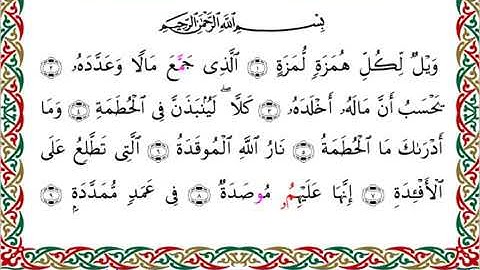 بِسْمِ اللَّهِ الرَّحْمَٰنِ الرَّحِيمِ
وَيْلٌ لِّكُلِّ هُمَزَةٍ لُّمَزَةٍ ١ ٱلَّذِى جَمَّعَ مَالًا وَعَدَّدَهُۥ ٢
يَحْسَبُ أَنَّ مَالَهُۥ أَخْلَدَهُۥ ٣ كَلَّا ۖ لَيُنۢبَذَنَّ فِى ٱلْحُطَمَةِ ٤ وَمَا
أَدْرَىٰكَ مَا ٱلْحُطَمَةُ ٥ نَارُ ٱللَّهِ ٱلْمُوقَدَةُ ٦ ٱلَّتِى تَطَّلِعُ عَلَى
ٱلْأَفْـِٔدَةِ ٧ إِنَّهَا عَلَيْهِمُۥ مُوصَدَةٌ ٨ فِى عَمَدٍ مُّمَدَّدَةٍ ٩